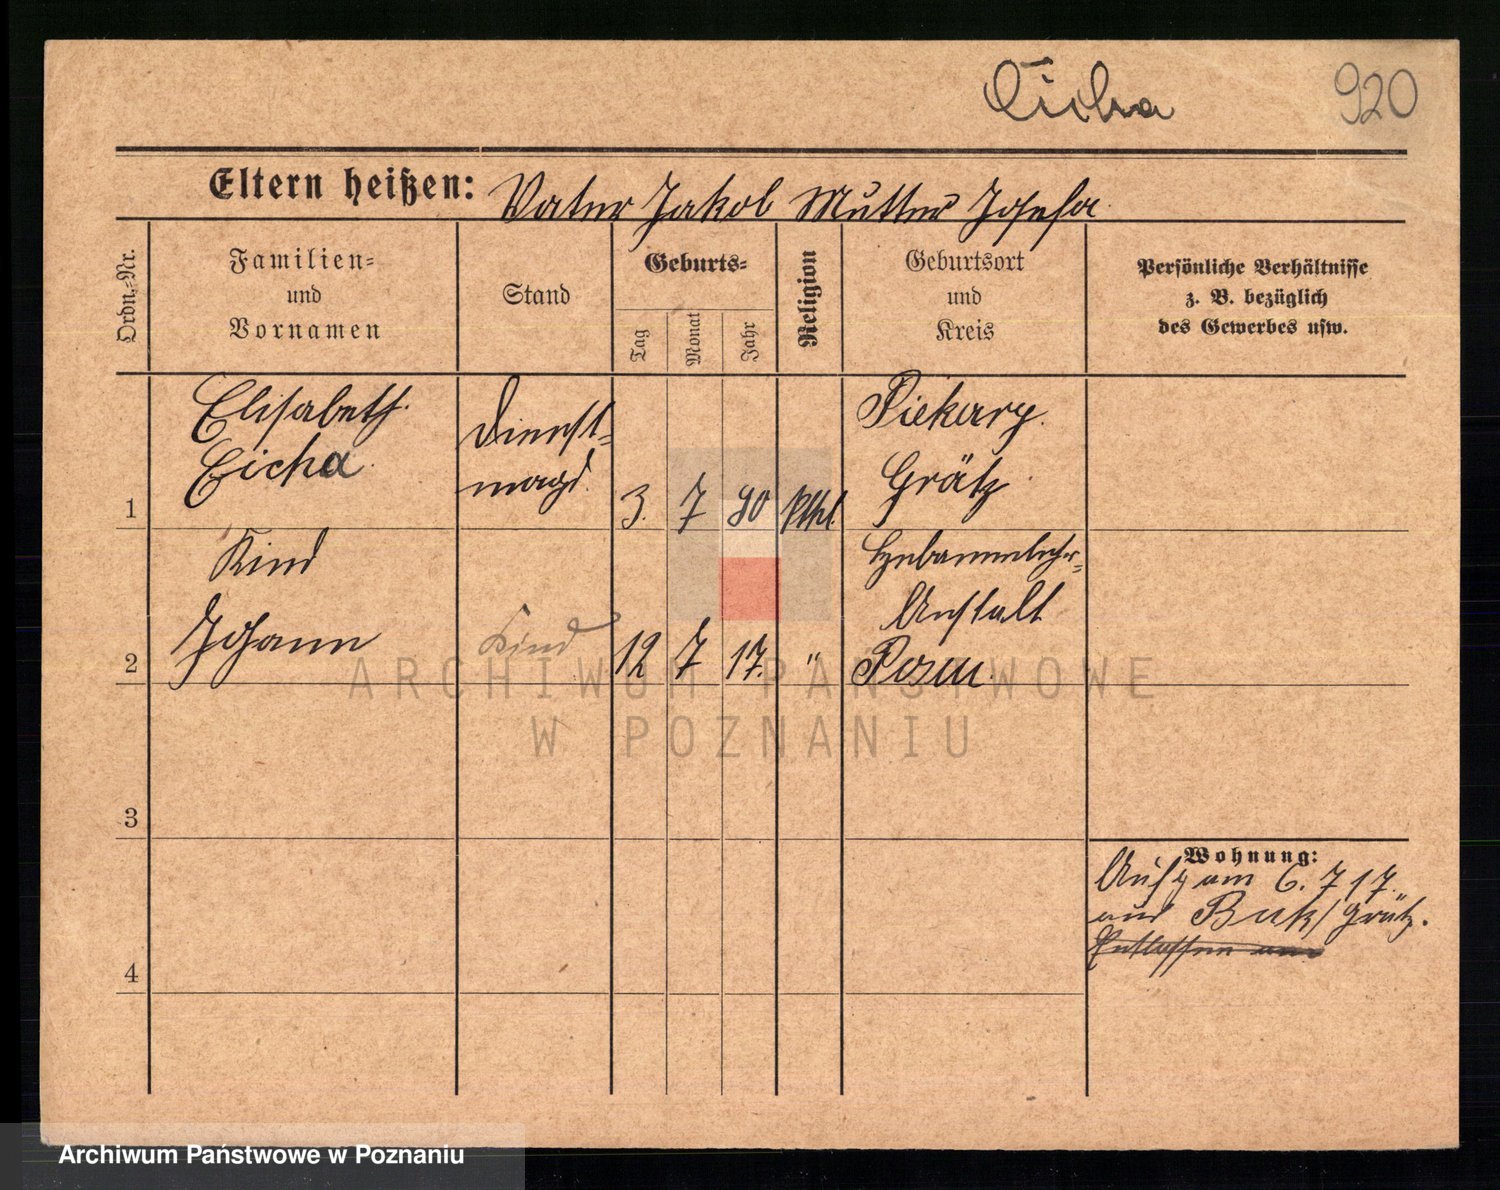 Cicha
920
Eltern heißen: Vater Jakob Mutter Josefa.
Ordn.-Nr.
Familien-
und
Vornamen
Stand
Geburts-
Tag
Monat
Jahr
Religion
Geburtsort
und
Kreis
Persönliche Verhältnisse
z. B. bezüglich
des Gewerbes usw.
1
Elisabeth
Cicha
Dienst-
magd.
3.
7
90
kthl.
Piekary.
Grätz
2
Kind
Johann
Kind
12
7
17.
"
Hebammenlehr-
Anstalt
Posen.
3
4
Wohnung:
Aufg am 6. 7 17.
aus Buk/Grätz.
Entlassen am
ARCHIWUM PAŃSTWOWE
W POZNANIU
Archiwum Państwowe w Poznaniu